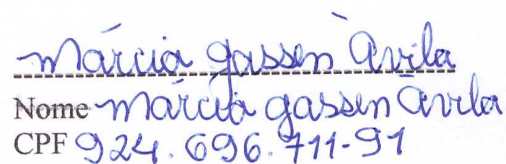 Márcia Gassen Ávila
Nome Márcia Gassen Ávila
CPF 924.696.711-91